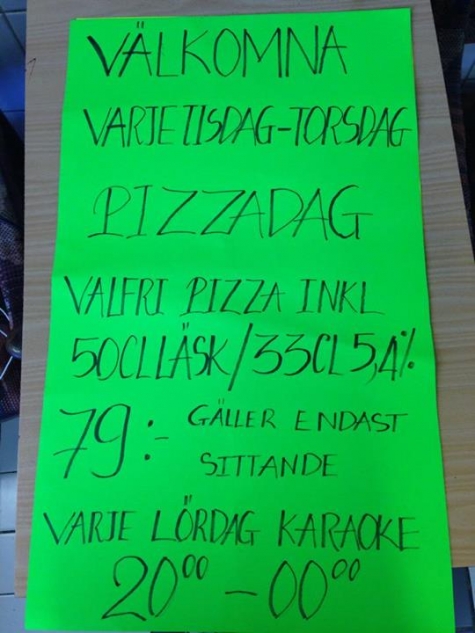 VÄLKOMNA
VARJE TISDAG-TORSDAG
PIZZADAG
VALFRI PIZZA INKL
50CL LÄSK/33CL 5,4%
79:- GÄLLER ENDAST
SITTANDE
VARJE LÖRDAG KARAOKE
20⁰⁰ - 00⁰⁰